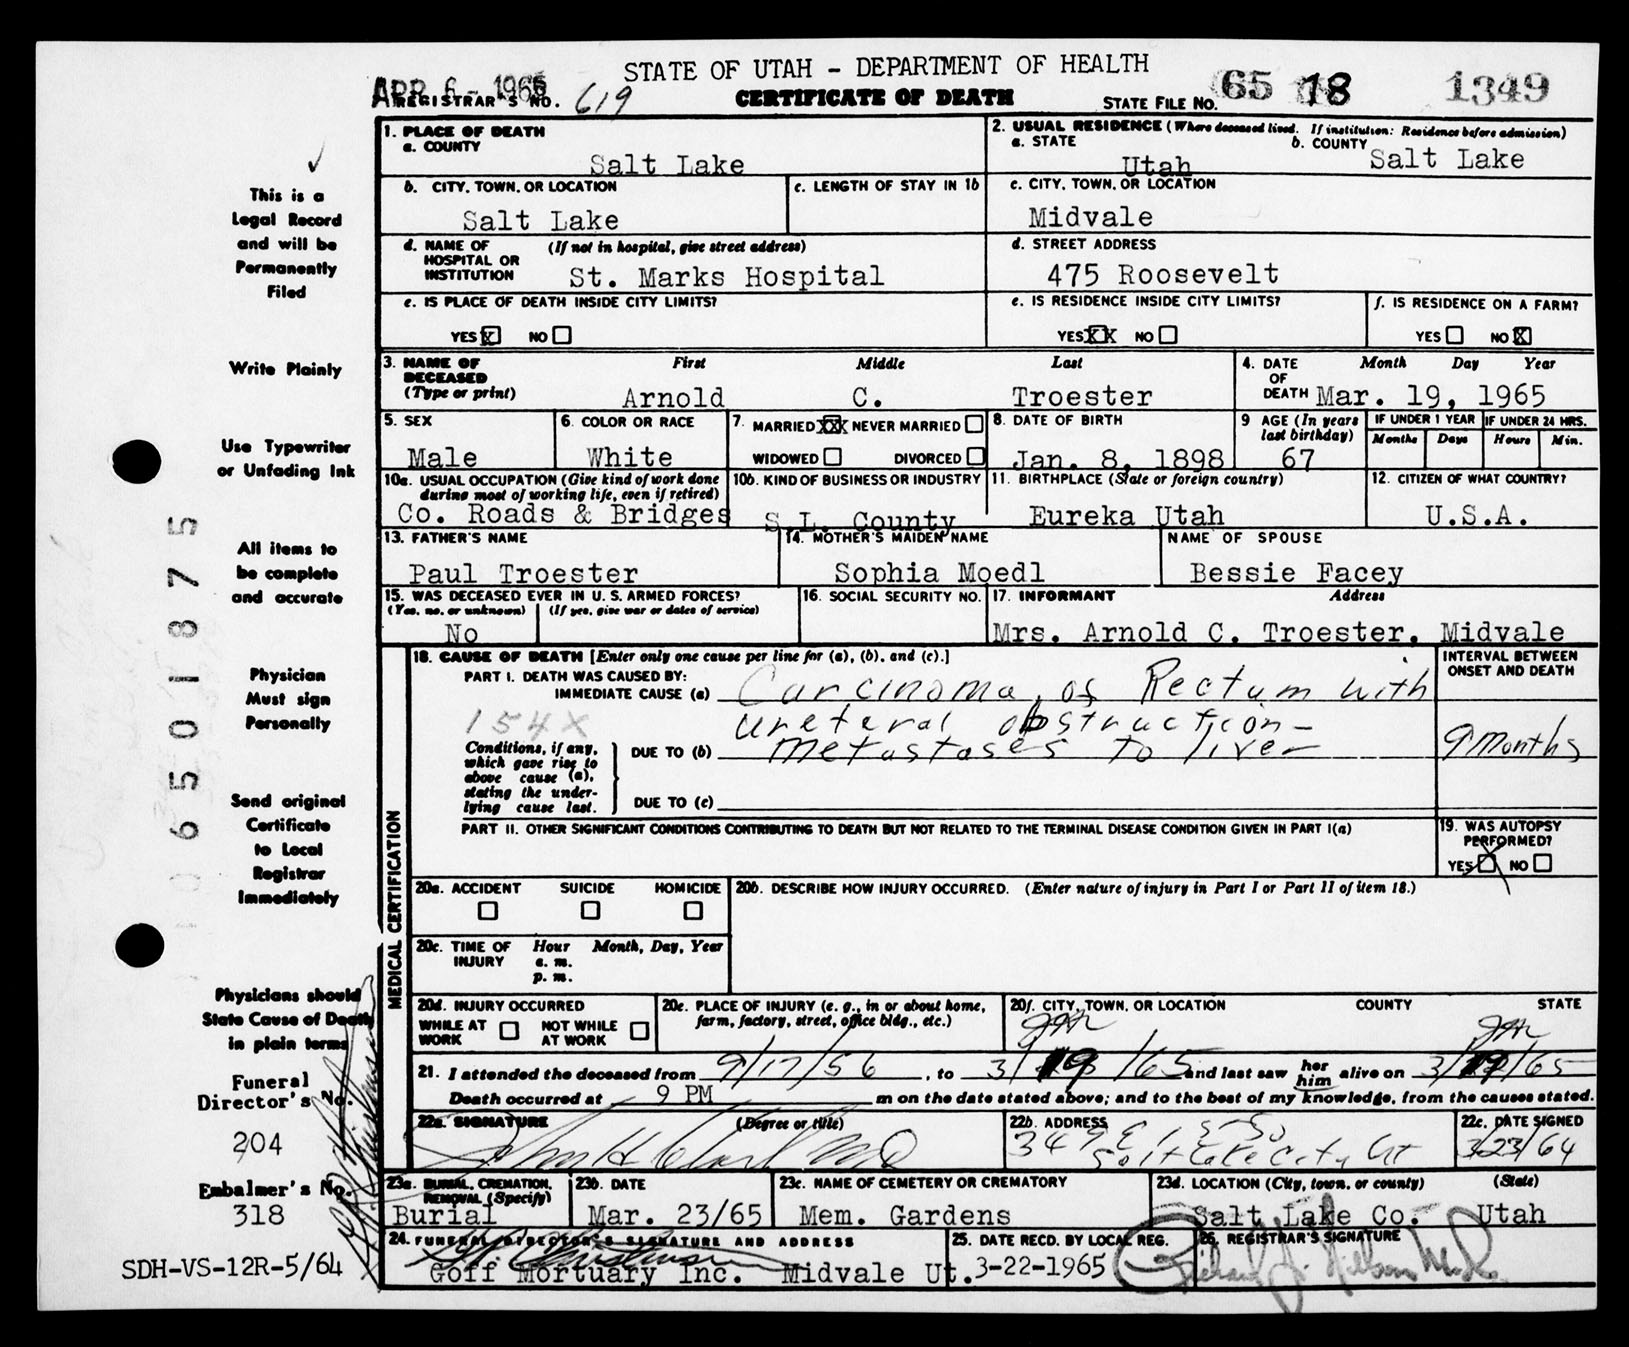 STATE OF UTAH - DEPARTMENT OF HEALTH
APR 6 - 1965
REGISTRAR'S NO. 619
CERTIFICATE OF DEATH
STATE FILE NO. 65 18 1349
1. PLACE OF DEATH
a. COUNTY
Salt Lake
2. USUAL RESIDENCE (Where deceased lived. If institution: Residence before admission)
a. STATE Utah b. COUNTY Salt Lake
b. CITY, TOWN, OR LOCATION
Salt Lake
c. LENGTH OF STAY IN 1b
c. CITY, TOWN, OR LOCATION
Midvale
d. NAME OF HOSPITAL OR INSTITUTION (If not in hospital, give street address)
St. Marks Hospital
d. STREET ADDRESS
475 Roosevelt
e. IS PLACE OF DEATH INSIDE CITY LIMITS?
YES X NO
e. IS RESIDENCE INSIDE CITY LIMITS?
YES XX NO
f. IS RESIDENCE ON A FARM?
YES NO X
3. NAME OF DECEASED (Type or print)
First Middle Last
Arnold C. Troester
4. DATE OF DEATH Month Day Year
Mar. 19, 1965
5. SEX
Male
6. COLOR OR RACE
White
7. MARRIED XX NEVER MARRIED
WIDOWED DIVORCED
8. DATE OF BIRTH
Jan. 8, 1898
9 AGE (In years last birthday)
67
IF UNDER 1 YEAR
Months Days
IF UNDER 24 HRS.
Hours Min.
10a. USUAL OCCUPATION (Give kind of work done during most of working life, even if retired)
Co. Roads & Bridges
10b. KIND OF BUSINESS OR INDUSTRY
S.L. County
11. BIRTHPLACE (State or foreign country)
Eureka Utah
12. CITIZEN OF WHAT COUNTRY?
U.S.A.
13. FATHER'S NAME
Paul Troester
14. MOTHER'S MAIDEN NAME
Sophia Moedl
NAME OF SPOUSE
Bessie Facey
15. WAS DECEASED EVER IN U. S. ARMED FORCES?
(Yes, no, or unknown) (If yes, give war or dates of service)
No
16. SOCIAL SECURITY NO.
17. INFORMANT Address
Mrs. Arnold C. Troester. Midvale
MEDICAL CERTIFICATION
18. CAUSE OF DEATH [Enter only one cause per line for (a), (b), and (c).]
INTERVAL BETWEEN ONSET AND DEATH
PART I. DEATH WAS CAUSED BY:
IMMEDIATE CAUSE (a) Carcinoma of Rectum with
154X
ureteral obstruction -
Conditions, if any, which gave rise to above cause (a), stating the underlying cause last.
DUE TO (b) metastases to liver
9 Months
DUE TO (c)
PART II. OTHER SIGNIFICANT CONDITIONS CONTRIBUTING TO DEATH BUT NOT RELATED TO THE TERMINAL DISEASE CONDITION GIVEN IN PART I(a)
19. WAS AUTOPSY PERFORMED?
YES X NO
20a. ACCIDENT SUICIDE HOMICIDE
20b. DESCRIBE HOW INJURY OCCURRED. (Enter nature of injury in Part I or Part II of item 18.)
20c. TIME OF INJURY Hour Month, Day, Year
a. m.
p. m.
20d. INJURY OCCURRED
WHILE AT WORK NOT WHILE AT WORK
20e. PLACE OF INJURY (e. g., in or about home, farm, factory, street, office bldg., etc.)
20f. CITY, TOWN, OR LOCATION COUNTY STATE
21. I attended the deceased from 9/17/56, to 3/19/65 and last saw her him alive on 3/19/65
Death occurred at 9 PM m on the date stated above; and to the best of my knowledge, from the causes stated.
22a. SIGNATURE (Degree or title)
MD
22b. ADDRESS
Salt Lake City Ut
22c. DATE SIGNED
3/23/64
23a. BURIAL, CREMATION, REMOVAL (Specify)
Burial
23b. DATE
Mar. 23/65
23c. NAME OF CEMETERY OR CREMATORY
Mem. Gardens
23d. LOCATION (City, town, or county) (State)
Salt Lake Co. Utah
24. FUNERAL DIRECTOR'S SIGNATURE AND ADDRESS
Goff Mortuary Inc. Midvale Ut.
25. DATE RECD. BY LOCAL REG.
3-22-1965
26. REGISTRAR'S SIGNATURE
This is a
Legal Record
and will be
Permanently
Filed
Write Plainly
Use Typewriter
or Unfading Ink
All items to
be complete
and accurate
Physician
Must sign
Personally
Send original
Certificate
to Local
Registrar
Immediately
Physicians should
State Cause of Death
in plain terms
Funeral
Director's No.
204
Embalmer's No.
318
SDH-VS-12R-5/64
0 6 5 0 1 8 7 5